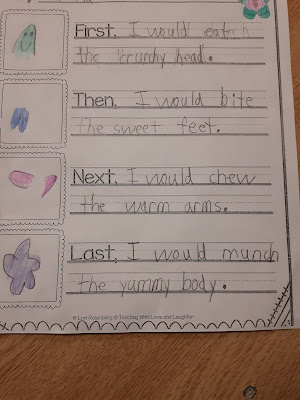 First, I would eat
the crunchy head.
Then, I would bite
the sweet feet.
Next, I would chew
the warm arms.
Last, I would munch
the yummy body.
© Lori Rosenberg @ Teaching With Love and Laughter